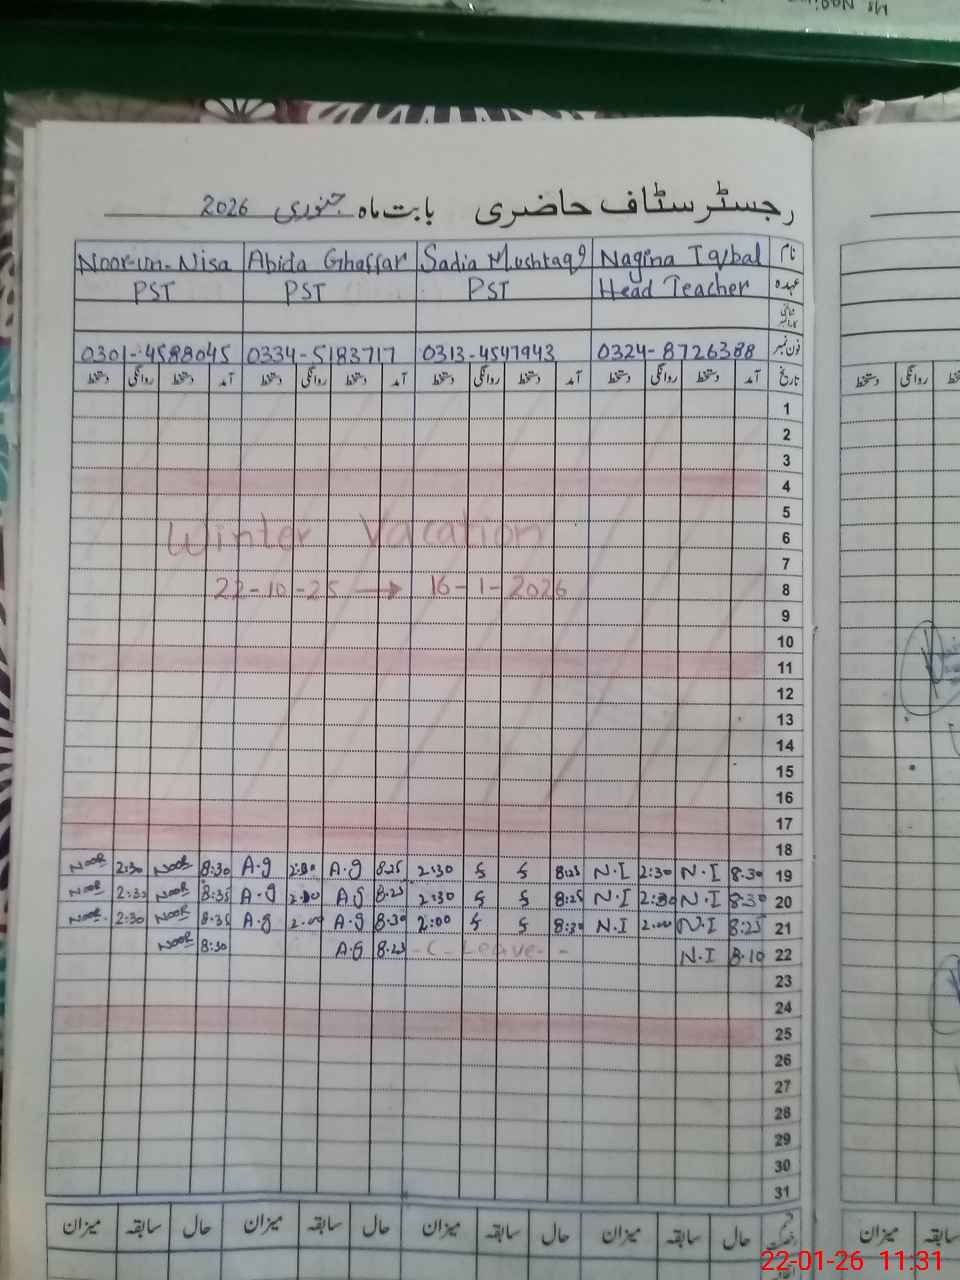 رجسٹر سٹاف حاضری بابت ماہ جنوری 2026
نام Nagina Iqbal Sadia Mushtaq Abida Ghaffar Noor-un-Nisa
عہدہ Head Teacher PST PST PST
فون نمبر 0324-8726388 0313-4547943 0334-5183717 0301-4588045
تاریخ آمد دستخط روانگی دستخط آمد دستخط روانگی دستخط آمد دستخط روانگی دستخط آمد دستخط روانگی دستخط
1
2
3
4
5
Winter Vacation
6
7
22-10-25 → 16-1-2026
8
9
10
11
12
13
14
15
16
17
18
19 8:30 N.I 2:30 N.I 8:25 2:30 8:25 A.g 2:30 A.g 8:30 Noor 2:30 Noor
20 8:30 N.I 2:30 N.I 8:25 2:30 8:25 A.g A.g 8:35 Noor 2:30 Noor
21 8:25 N.I 2:00 N.I 8:30 2:00 8:30 A.g 2:00 A.g 8:35 Noor 2:30 Noor
22 8:10 N.I - C - Leave - - A.g 8:30 Noor
23
24
25
26
27
28
29
30
31
حال سابقہ میزان حال سابقہ میزان حال سابقہ میزان حال سابقہ میزان
دستخط روانگی
میزان سابقہ
22-01-26 11:31